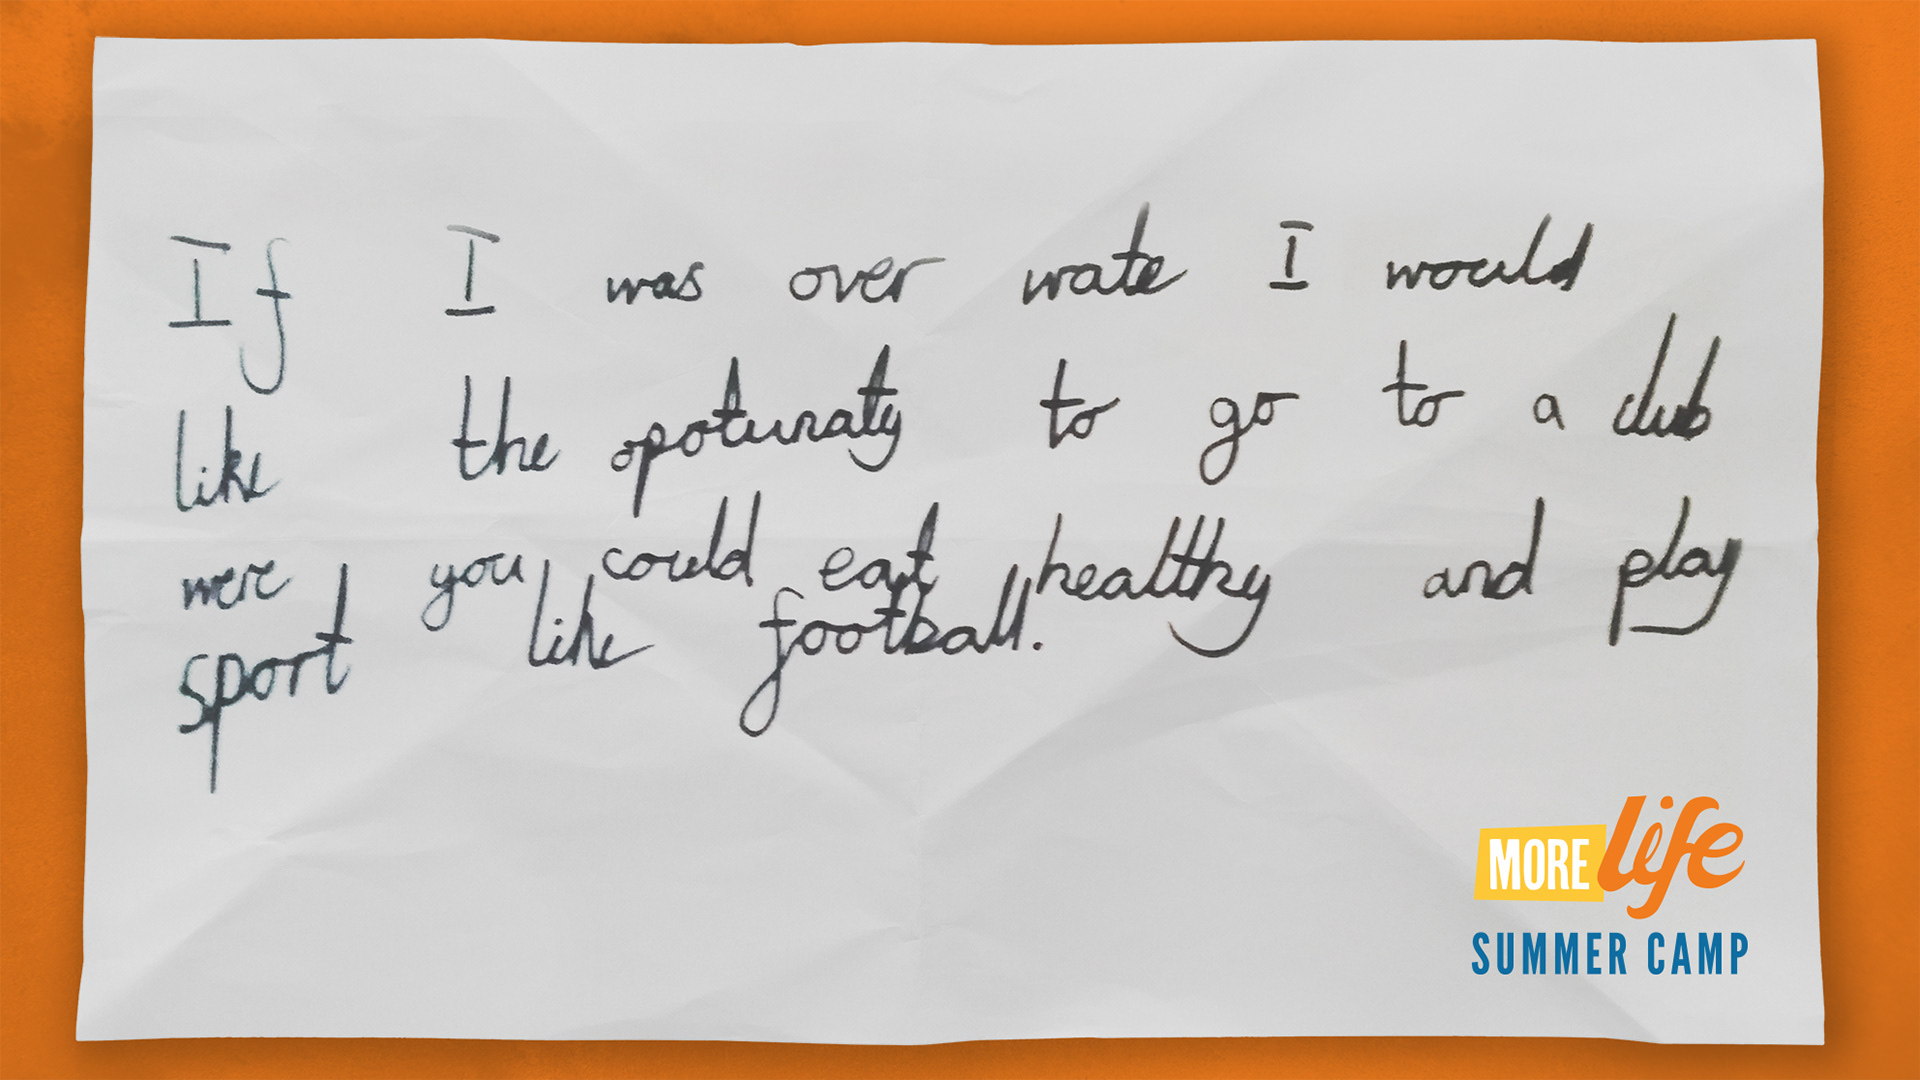 If I was over wate I would
like the opotunaty to go to a club
were you could eat healthy and play
sport like football.
MORE life
SUMMER CAMP